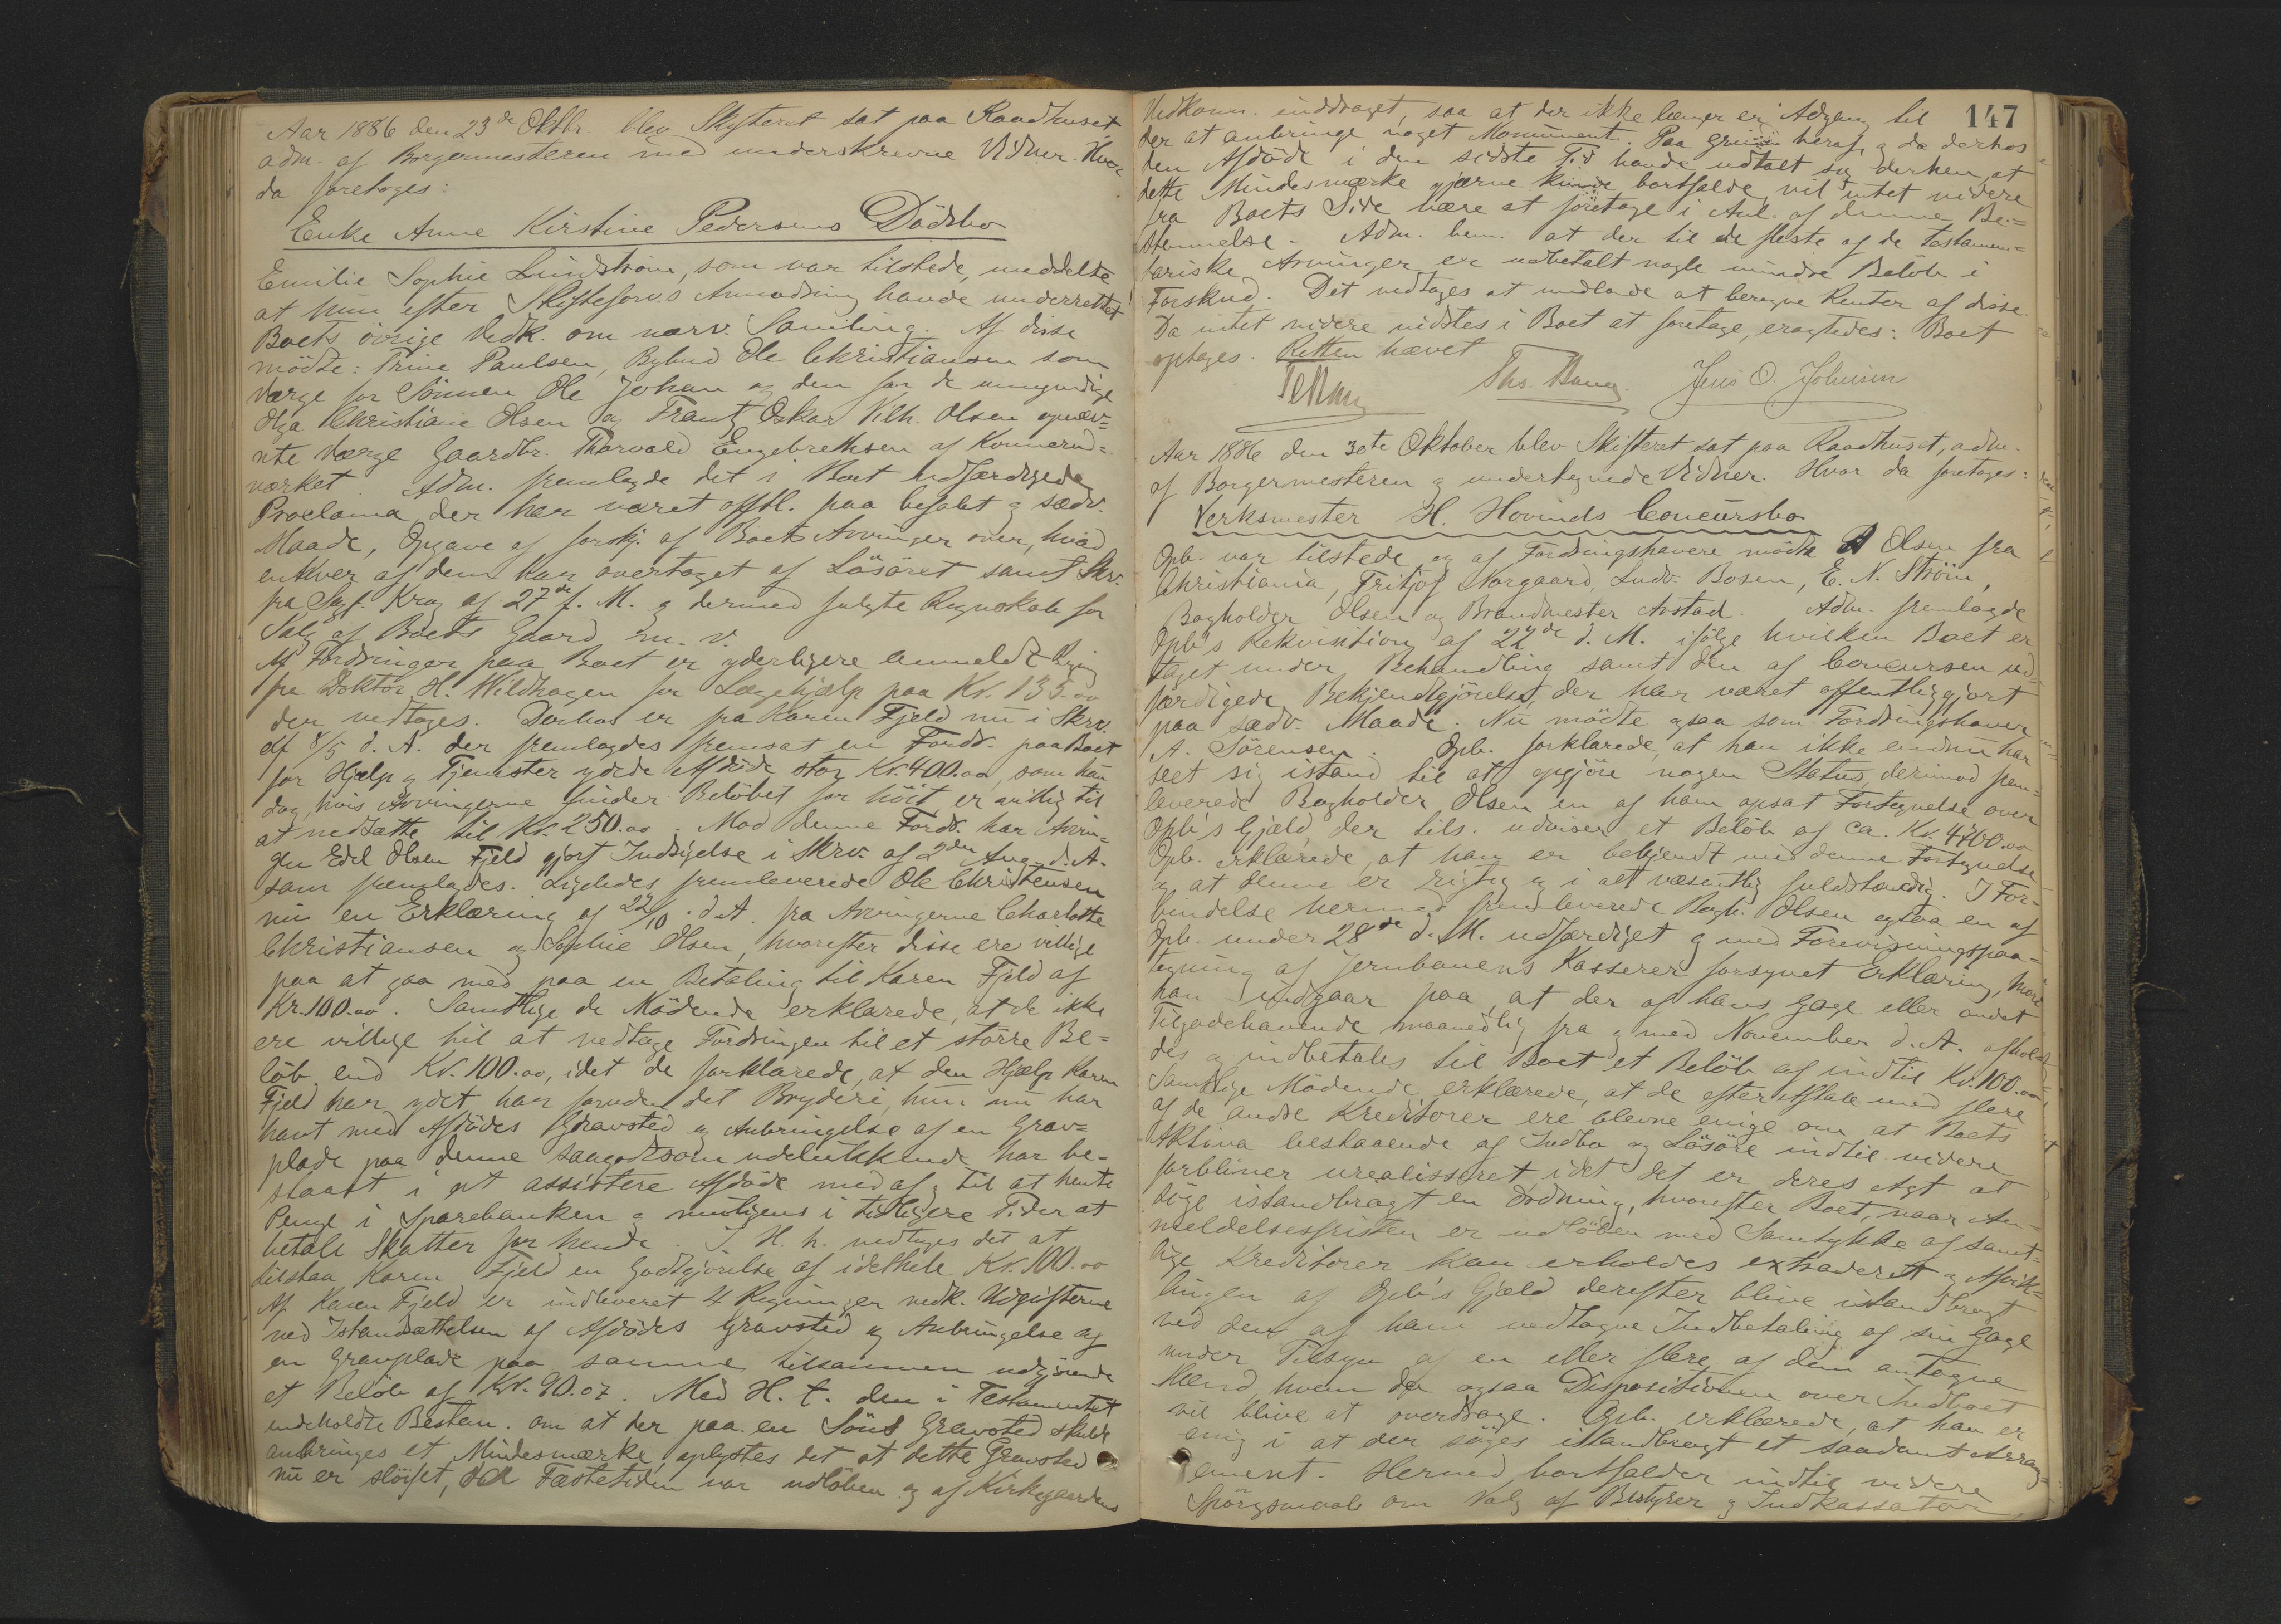 Aar 1886 den 23de Oktbr. blev Skifteret sat paa Raadhuset,
adm. af Borgermesteren med underskrevne Vidner. Hvor
da foretoges:
Enke Anne Kirstine Pedersens Dödsbo
Emilie Sophie Lundström, som var tilstede, meddelte
at hun efter Skifteforv.s Anmodning havde underrettet
Boets övrige Vedk. om nærv. Samling. Af disse
mödte: Trine Paulsen, Bybud Ole Christiansen som
Værge for Sönnen Ole Johan og den for de umyndige
Olga Christiane Olsen og Frantz Oskar Vilh. Olsen opnæv=
nte Værge Gaardbr. Thorvald Engebrethsen af Konnerud=
værket. Adm. fremlagde det i Boet udfærdigede
Proclama, der har været offtl. paa befalet og sædv.
Maade, Opgave af forskj. af Boets Arvinger over, hvad
enhver af dem har overtaget af Lösöret samt Skr.
fra Sagf. Krag af 27de f. M. og dermed fulgte Regnskab for
Salg af Boets Gaard m. v.
Af Fordringer paa Boet er yderligere anmeldt Regning
fra Doktor H. Wildhagen for Lægehjælp paa Kr. 135.00
der vedtoges. Derhos er fra Karen Fjeld nu i Skrv.
af 8/5 d. A. der fremlagdes fremsat en Fordr. paa Boet
for Hjælp og Tjenester ydede Afdöde stor Kr. 400.00, som hun
dog, hvis Arvingerne finder Belöbet for höit er villig til
at nedsætte til Kr. 250.00. Mod denne Fordr. har Arvin=
gen Edel Olsen Fjeld gjort Indsigelse i Skrv. af 2den Aug. d. A.
som fremlagdes. Ligeledes fremleverede Ole Christensen
nu en Erklæring af 22/10 d. A. fra Arvingerne Charlotte
Christiansen og Sophie Olsen, hvorefter disse ere villige
paa at gaa med paa en Betaling til Karen Fjeld af
Kr. 100.00. Samtlige de Mödende erklærede, at de ikke
ere villige til at vedtage Fordringen til et större Be=
löb end Kr. 100.00, idet de forklarede, at den Hjælp Karen
Fjeld har ydet har foruden det Bryderi, hun nu har
havt med Afdödes Gravsted og Anbringelse af en Grav=
plade paa denne saagodtsom udelukkende har be=
staaet i at assistere Afdöde med af og til at hente
Penge i Sparebanken og muligens i tidligere Tider at
betale Skatter for hende. I H. h. vedtoges det at
tilstaa Karen Fjeld en Godtgjörelse af idethele Kr. 100.00
Af Karen Fjeld er indleveret 4 Regninger vedk. Udgifterne
ved Istandsættelsen af Afdödes Gravsted og Anbringelse af
en Gravplade paa samme tilsammen udgjörende
et Belöb af Kr. 90.07. Med H. t. den i Testamentet
indeholdte Bestem. om at der paa en Söns Gravsted skulde
anbringes et Mindesmærke, oplystes det at dette Gravsted
nu er slöifet, da Fæstetiden var udlöben og af Kirkegaardens
147
Vedkomm. inddraget, saa at der ikke længer er Adgang til
der at anbringe noget Monument. Paa Grund heraf, og da derhos
den Afdöde i den sidste Tid havde udtalt sig derhen, at
dette Mindesmærke gjerne kunde bortfalde, vil intet videre
fra Boets Side være at foretage i Anl. af denne Be=
stemmelse. Adm. bem. at der til de fleste af de testamen=
tariske Arvinger er udbetalt nogle mindre Belöb i
Forskud. Det vedtoges at undlade at beregne Renter af disse.
Da intet videre vidstes i Boet at foretage, eragtedes: Boet
optages. Retten hævet
Ths. Jens O. Johnsen
Aar 1886 den 30te Oktober blev Skifteret sat paa Raadhuset, adm.
af Borgermesteren og undertegnede Vidner. Hvor da foretoges:
Verksmester H. Hovinds Concursbo
Opb. var tilstede og af Fordringshavere mödte A Olsen fra
Christiania, Fritjof Norgaard, Ludv. Bosen, E. N. Ström,
Bogholder Olsen og Brandmester Arstad. Adm. fremlagde
Opb's Rekvisition af 22de d. M. ifölge hvilken Boet er
taget under Behandling samt den af Concursen ud=
færdigede Bekjendtgjörelse, der har været offentliggjort
paa sædv. Maade. Nu mödte ogsaa som Fordringshaver
A. Sörensen. Opb. forklarede, at han ikke endnu har
seet sig istand til at opgjöre nogen Status, derimod frem=
leverede Bogholder Olsen en af ham opsat Fortegnelse over
Opb's Gjæld, der tils. udviser et Belöb af ca. Kr. 4400.00
Opb. erklærede, at han er bekjendt med denne Fortegnelse
og at denne er rigtig og i alt væsentlig fuldstændig. I For=
bindelse hermed fremleverede Bogh. Olsen ogsaa en af
Opb. under 28de d. M. udfærdiget og med Forevisningspaa=
tegning af Jernbanens Kasserer forsynet Erklæring, hvori
han indgaar paa, at der af hans Gage eller andet
Tilgodehavende maanedlig fra og med November d. A. afhol=
des og indbetales til Boet et Belöb af indtil Kr. 100.00
Samtlige Mödende erklærede, at de efter Aftale med flere
af de andre Kreditorer ere blevne enige om at Boets
Aktiva bestaaende af Indbo og Lösöre indtil videre
forbliver urealisseret, idet det er deres Agt at
söge istandbragt en Ordning, hvorefter Boet, naar An=
meldelsesfristen er udlöben med Samtykke af samt=
lige Kreditorer kan erholdes extraderet og Afvik=
lingen af Opb's Gjæld derefter blive istandbragt
ved den af ham vedtagne Indbetaling af sin Gage
under Tilsyn af en eller flere af dem antagne
Mænd, hvem da ogsaa Dispositionen over Indboet
vil blive at overdrage. Opb. erklærede, at han er
enig i at der söges istandbragt et saadant Arrang=
ement. Herved bortfalder indtil videre
Spörgsmaal om Valg af Bestyrer og Indkassator